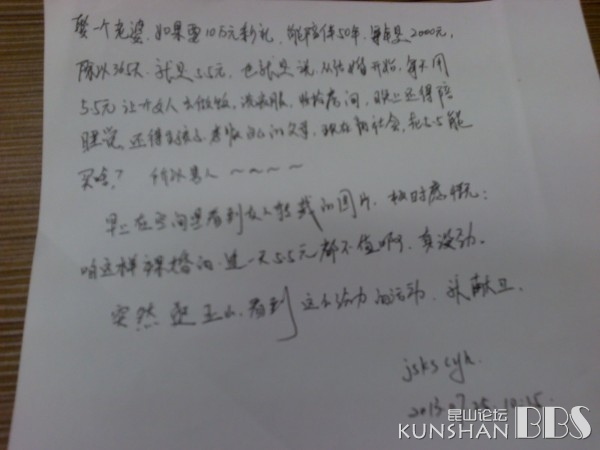 娶一个老婆,如果要10万元彩礼,能陪伴50年,每年是2000元,
除以365天,就是5.5元,也就是说,从结婚开始,每天用
5.5元让一女人去做饭,洗衣服,收拾房间,晚上还得陪
睡觉,还得生孩子,孝敬的父母,现在的社会,花5.5能
买啥? 所以男人~~~~
早上在空间里看到友人转载的图片,顿时感慨:
咱这样裸婚的,连一天5.5元都不值啊,真没劲。
突然逛玉山,看到这个给力的活动,来献丑。
jsks cyh.
2013.07.25. 10:25
昆山论坛
KUNSHAN BBS